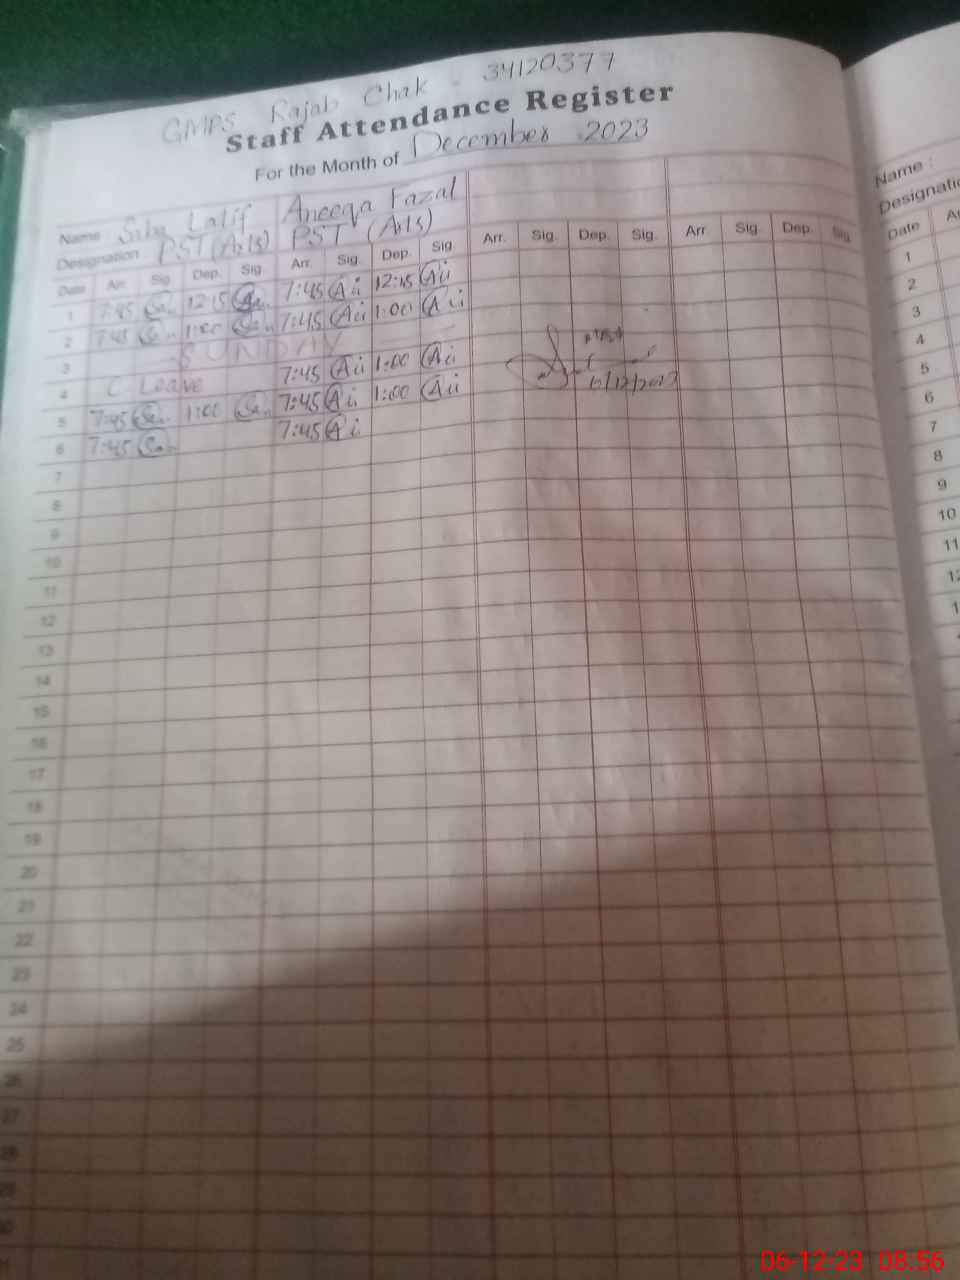 GMPS Rajab Chak - 34120377
Staff Attendance Register
For the Month of December 2023
Name Saba Latif Aneeqa Fazal
Designation PST (Arts) PST (Arts)
Date Arr. Sig. Dep. Sig. Arr. Sig. Dep. Sig Arr. Sig. Dep. Sig. Arr. Sig. Dep. Sig.
1 7:45 12:15 7:45 12:15
2 7:45 1:00 7:45 1:00
3 SUNDAY
4 C Leave 7:45 1:00
5 7:45 1:00 7:45 1:00
6 7:45 7:45
7
8
9
10
11
12
13
14
15
16
17
18
19
20
21
22
23
24
25
26
27
28
29
30
Name :
Date
1
2
3
4
5
6
7
8
9
10
11
06-12-23 08:56